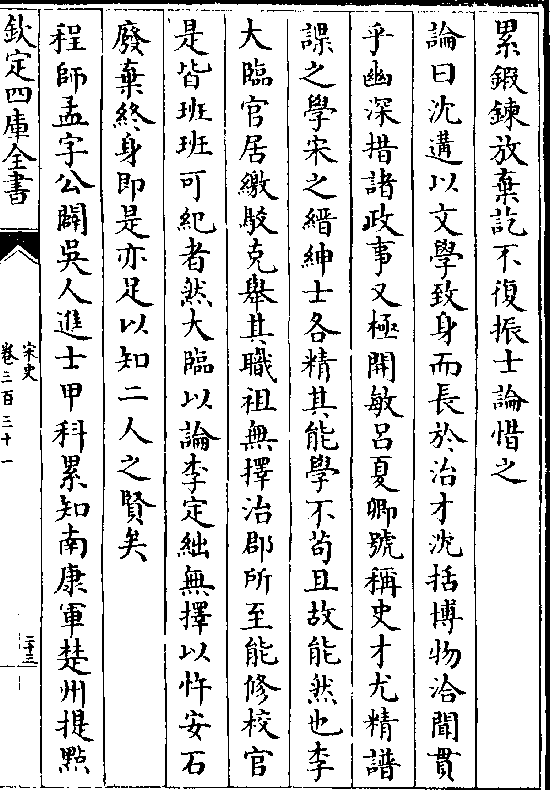 累鍛鍊放棄訖不復振士論惜之
論曰沈遘以文學致身而長於治才沈括博物洽聞貫
乎幽深措諸政事又極開敏呂夏卿號稱史才尤精譜
諜之學宋之縉紳士各精其能學不茍且故能然也李
大臨官居繳駮克舉其職祖無擇治郡所至能修校官
是皆班班可紀者然大臨以論李定絀無擇以忤安石
廢棄終身即是亦足以知二人之賢矣
程師孟字公闢吳人進士甲科累知南康軍楚州提點
欽定四庫全書
宋史
卷三百三十一
二十三